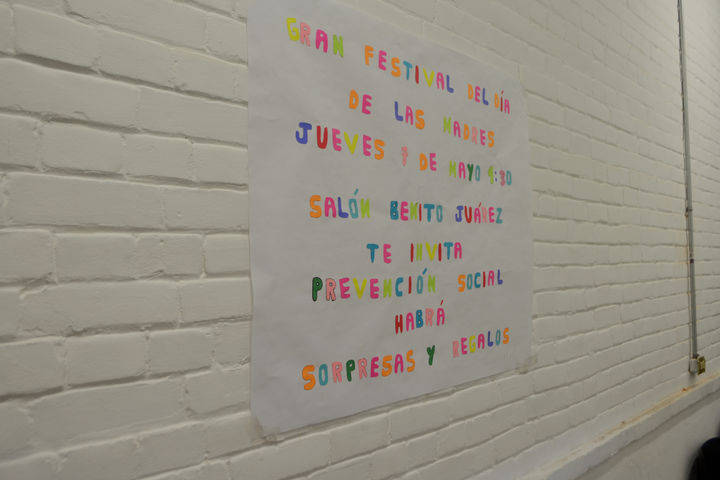 GRAN FESTIVAL DEL DÍA
DE LAS MADRES
JUEVES 7 DE MAYO 4:30
SALÓN BENITO JUÁREZ
TE INVITA
PREVENCIÓN SOCIAL
HABRÁ
SORPRESAS Y REGALOS